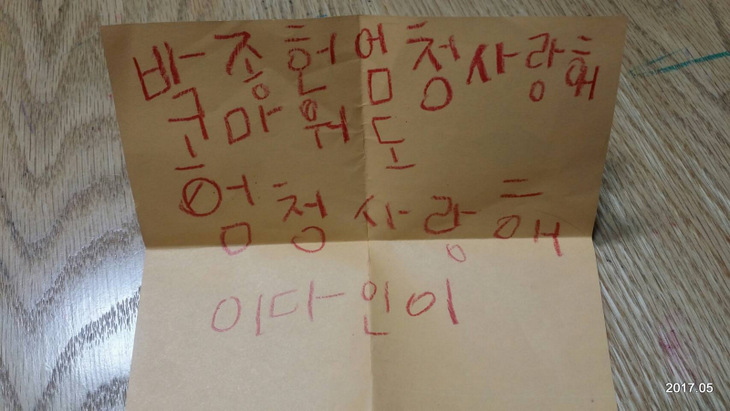 박종헌엄청사랑해
고마워도
엄청사랑해
이다인이
2017.05